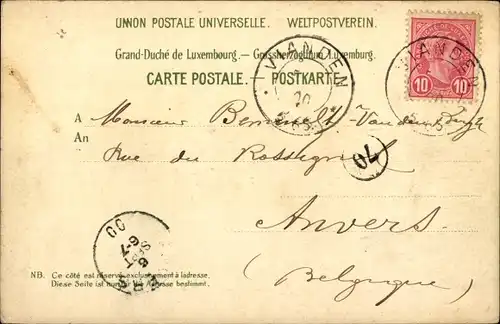 UNION POSTALE UNIVERSELLE. WELTPOSTVEREIN.
Grand-Duché de Luxembourg. — Grossherzogtum Luxemburg.
CARTE POSTALE. POSTKARTE.
VIANDEN
VIANDEN
10 10
A Monsieur
An Rue du Rossignol
70
Anvers
(Belgique)
NB. Ce côté est réservé exclusivement à ladresse.
Diese Seite ist nur für die Adresse bestimmt.